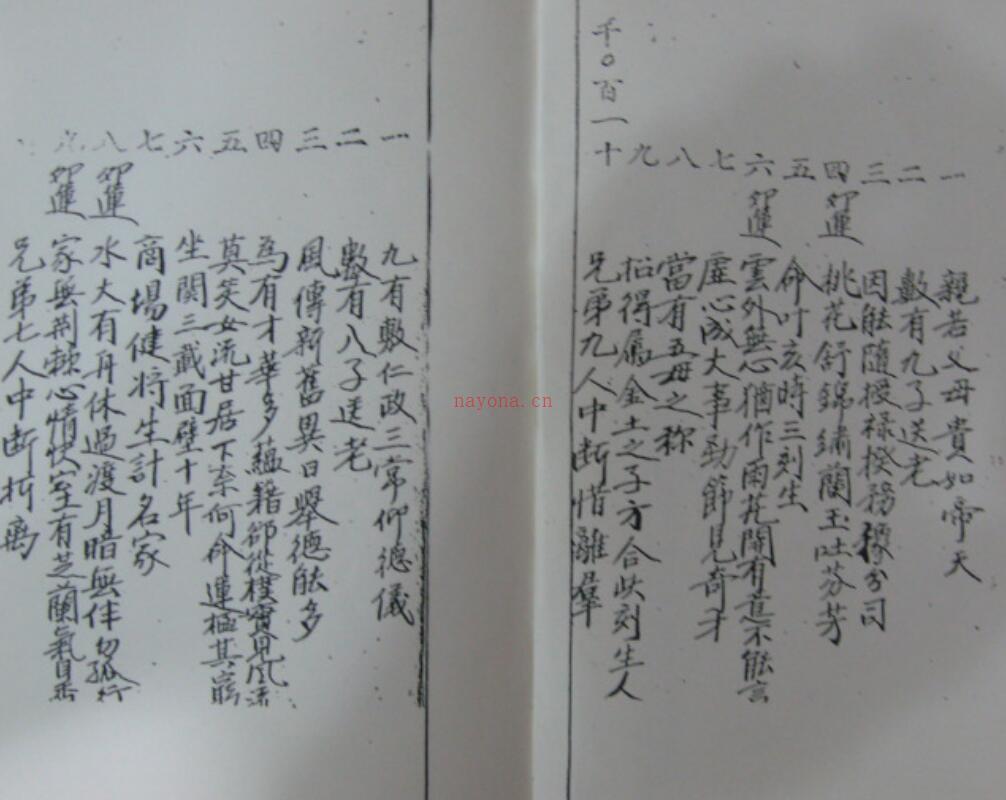 千〇百一十
一 親若父母貴如帝天
二 數有九子送老
三 因能隨授祿揆務分司
四 卯運 桃花舒錦繡蘭玉吐芬芳
五 命叶亥時三刻生
六 卯運 雲外無心猶作雨花開有意不能言
七 虛心成大事勁節見奇才
八 當有五母之称
九 得屬金土之子方合此刻生人
兄弟九人中断惜離羣
一 九有敷仁政三常仰德儀
二 數有八子送老
三 風傳新舊異日舉德能多
四 為有才華多蘊籍卻從樸實見風流
五 莫笑女流甘居下奈何命運極其窮
六 坐関三載面壁十年
七 商場健将生計名家
八 卯運 水大有舟休過渡月暗無伴勿孤行
九 卯運 家無荆棘心情快室有芝蘭氣自香
兄弟七人中断折
nayona.cn